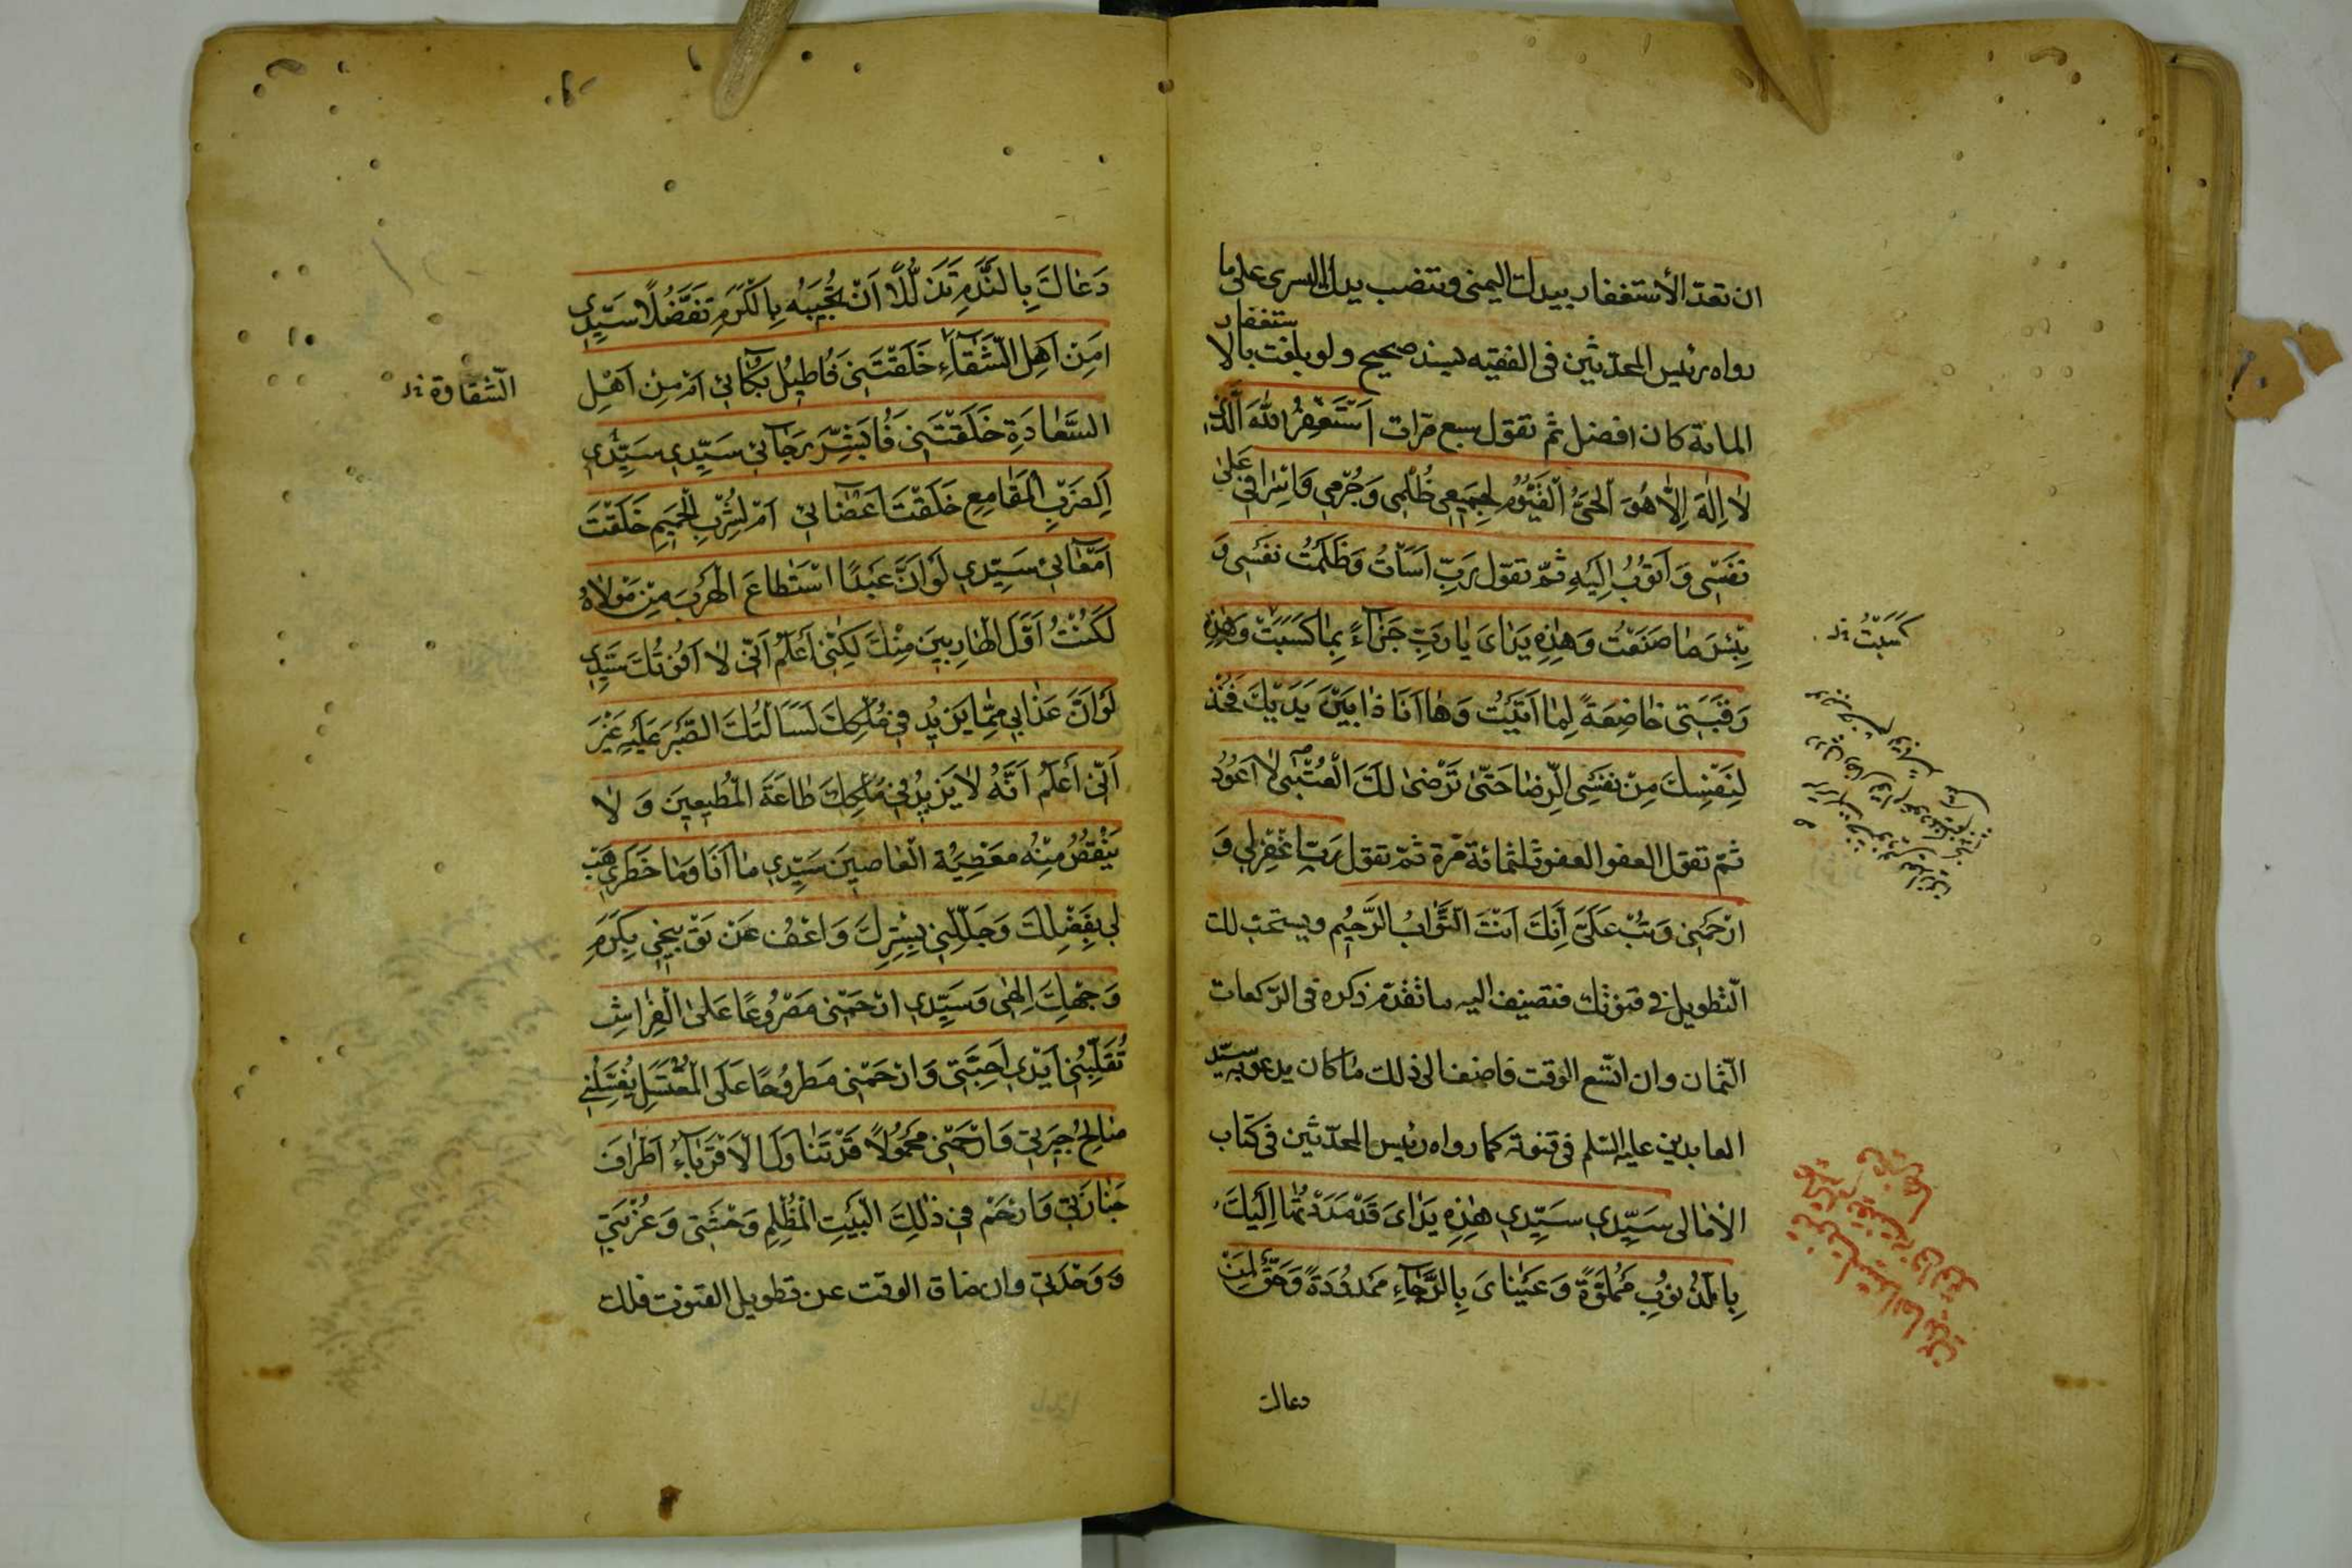 ان تعدّ الأستغفار بيدك اليمنى وتنصب يدك اليسرى على ما
رواه رئيس المحدّثين فى الفقيه بسند صحيح ولو بلغت بالا
ستغفار
المائة كان افضل ثم تقول سبع مرّات اَسْتَغْفِرُ اللّٰهَ الَّذِي
لاٰ اِلٰهَ اِلّاٰ هُوَ الْحَيُّ الْقَيُّوُمُ لِجَمِيعِ ظُلْمِى وَجُرْمِي وَاِسْرافِي عَلىٰ
نَفْسِى وَ اَتُوُبُ اِلَيْهِ ثمّ تقول رَبِّ اَسَأْتُ وَظَلَمْتُ نَفْسِى وَ
بِئْسَ مٰا صَنَعْتُ وَهٰذِهِ يَدٰاىَ يٰا رَبِّ جَزٰآءً بِمٰا كَسَبَتْ وَهٰذِهِ
رَقَبَتِي خٰاضِعَةً لِمٰا اَتَيْتُ وَ هٰا اَنَا ذٰا بَيْنَ يَدَيْكَ فَخُذْ
لِنَفْسِكَ مِنْ نَفْسِى الرِّضٰا حَتّىٰ تَرْضىٰ لَكَ الْعُتْبىٰ لاٰ اَعُوُدُ
ثمّ تقول العفو العفو ثلثمائة مرّة ثمّ تقول رَبِّ اغْفِرْلِي وَ
ارْحَمْنِى وَتُبْ عَلَىَّ اِنَّكَ اَنْتَ التَّوّٰابُ الرَّحِيُم ويستحبّ لك
التّطويل فى قنوتك فتضيف اليه ما تقدّم ذكره فى الرّكعات
الثّمان وان اتّسع الوقت فاضف الى ذلك مٰا كان يدعو به سيّد
العابدين عليه السّلم فى قنوته كما رواه رئيس المحدّثين فى كتاب
الأمٰالى سَيِّدِي سَيِّدِي هٰذِهِ يَدٰاىَ قَدْ مَدَدْتُهُمٰا اِلَيْكَ
بِالذُّنوُبِ مَمْلُوَّةً وَعَيْنٰاىَ بِالرَّجٰاءِ مَمْدُوُدَةً وَحَقٌّ لِمَنْ
دعاك
كَسَبْتُ خ‍
دَعٰاكَ بِالنَّدَمِ تَذَلُّلًا اَنْ تُجِيبَهُ بِالْكَرَمِ تَفَضُّلًا سَيِّدِي
اَمِنْ اَهْلِ الشَّقٰآءِ خَلَقْتَنِى فَاُطِيلُ بُكٰائِي اَمْ مِنْ اَهْلِ
السَّعٰادَةِ خَلَقْتَنِى فَاُبَشِّرَ رَجٰائِي سَيِّدِي سَيِّدِي
اَلِضَرْبِ الْمَقٰامِعِ خَلَقْتَ اَعْضٰائِي اَمْ لِشُرْبِ الْحَمِيمِ خَلَقْتَ
اَمْعٰائِي سَيِّدِي لَوْ اَنَّ عَبْدًا اسْتَطٰاعَ الْهَرَبَ مِنْ مَوْلاٰهُ
لَكُنْتُ اَوَّلَ الْهٰارِبِينَ مِنْكَ لكِنّى اَعْلَمُ اَنّى لاٰ اَفُوتُكَ سَيِّدِي
لَوْ اَنَّ عَذٰابِي مِمّٰا يَزيُد فِي مُلْكِكَ لَسَاَلْتُكَ الصَّبْرَ عَلَيْهِ غَيْرَ
اَنّى اَعْلَمُ اَنَّهُ لاٰ يَزيُد فِي مُلْكِكَ طٰاعَةَ الْمُطيعِينَ وَ لاٰ
يَنْقُصُ مِنْهُ مَعْصِيَةُ الْعٰاصينَ سَيِّدِي مٰا اَنَا وَمٰا خَطَرِي هَبْ
لِي بِفَضْلِكَ وَجَلِّلْنِي بِسِتْرِكَ وَ اعْفُ عَنْ تَوْبِيخِي بِكَرَمِ
وَجْهِكَ اِلهٰى وَ سَيِّدِي ارْحَمْنِى مَصْرُوعًا عَلَى الْفِرٰاشِ
تُقَلِّبُنِي اَيْدِي اَحِبَّتِي وَارْحَمْنِى مَطْرُوحًا عَلَى الْمُغْتَسَلِ يُغَسِّلُنِي
صٰالِحُ جِيرَتِي وَارْحَمْنِى مَحْمُولًا قَدْ تَنٰاوَلَ الْأَقْرِبٰآءُ اَطْرٰافَ
جَنٰازَتِي وَارْحَمْ فِي ذٰلِكَ الْبَيْتِ الْمُظْلِمِ وَحْشَتِي وَغُرْبَتِي
وَ وَحْدَتِي وان ضاق الوقت عن تطويل القنوت فلك
الشّقاوة خ‍